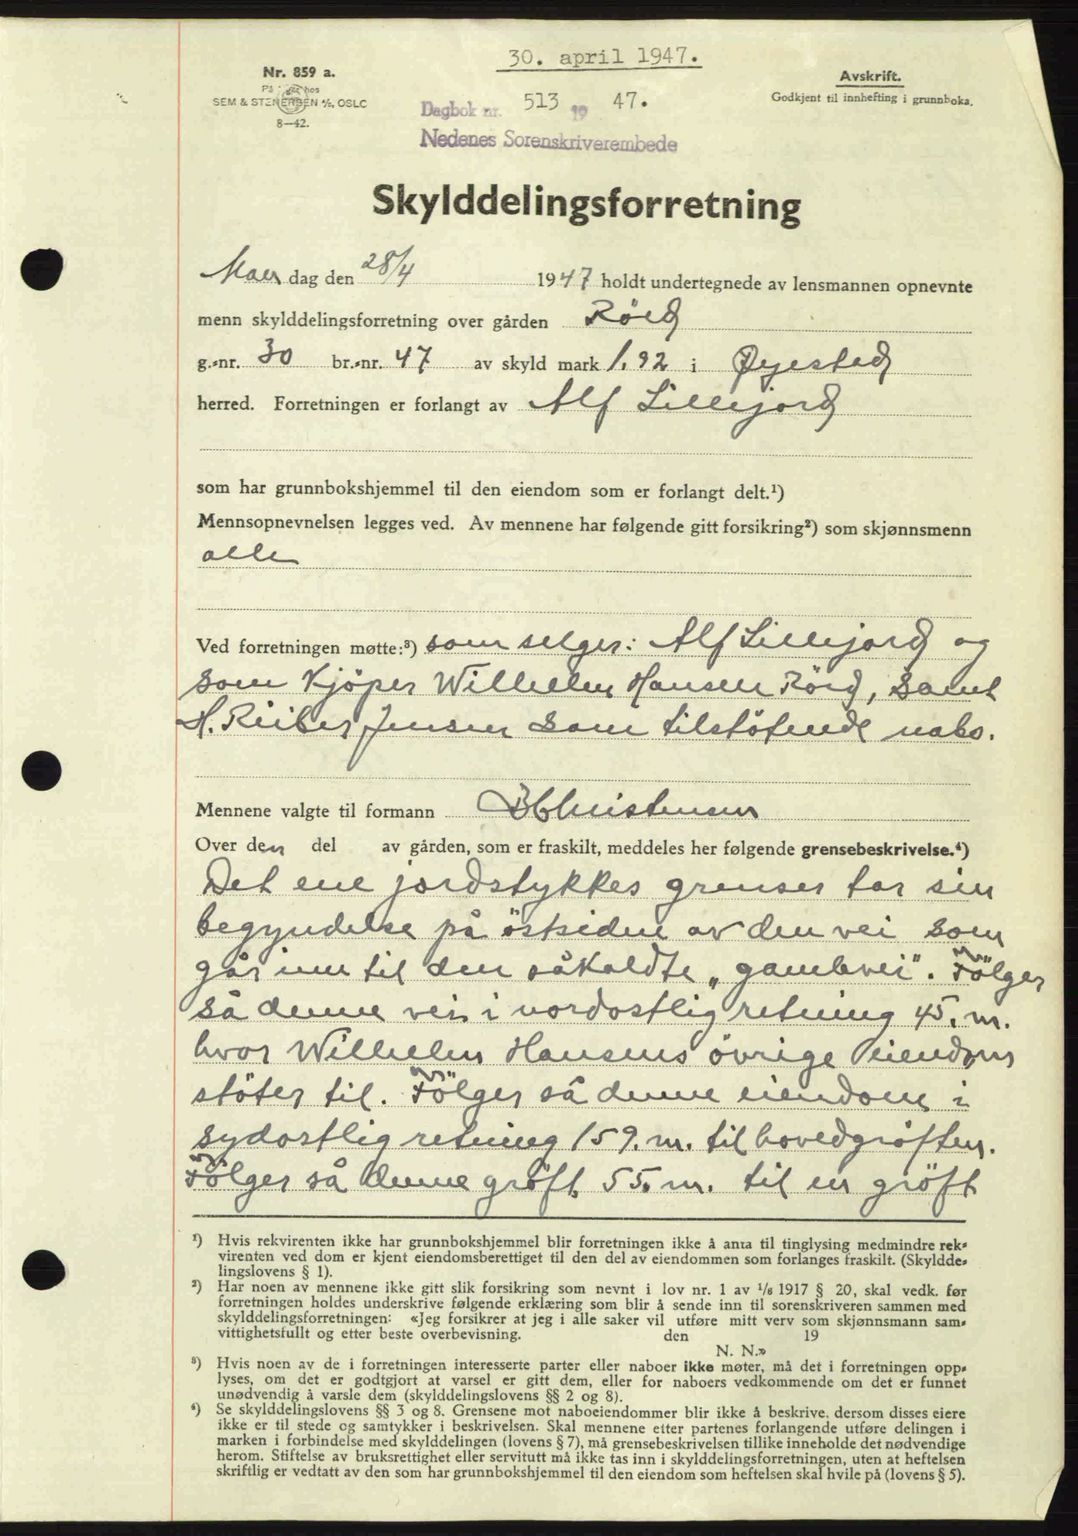 30. april 1947.
Nr. 859 a.
SEM & STENERSEN A/S, OSLO
8—42.
Avskrift.
Godkjent til innhefting i grunnboka.
Dagbok nr. 513 19 47.
Nedenes Sorenskriverembede
Skylddelingsforretning
Man dag den 28/4 1947 holdt undertegnede av lensmannen opnevnte
menn skylddelingsforretning over gården Röed
g.-nr. 30 br.-nr. 47 av skyld mark 1,92 i Øyestad
herred. Forretningen er forlangt av Alf Lillejord
som har grunnbokshjemmel til den eiendom som er forlangt delt.¹)
Mennsopnevnelsen legges ved. Av mennene har følgende gitt forsikring²) som skjønnsmenn
alle
Ved forretningen møtte:³) som selger: Alf Lillejord og
som Kjöper Wilhelm Hansen Röed, samt
H. Rieber Jensen som tilstötende nabo.
Mennene valgte til formann B Christensen
Over den del av gården, som er fraskilt, meddeles her følgende grensebeskrivelse.⁴)
Det ene jordstykkes grenser tar sin
begyndelse på östsiden av den vei som
går inn til den såkaldte „gamlevei". Fölger
så denne vei i nordostlig retning 45. m.
hvor Wilhelm Hansens övrige eiendom
stöter til. Fölger så denne eiendom i
sydostlig retning 159. m. til hovedgröften.
Fölger så denne gröft 55. m. til en gröft
¹) Hvis rekvirenten ikke har grunnbokshjemmel blir forretningen ikke å anta til tinglysing medmindre rek-
virenten ved dom er kjent eiendomsberettiget til den del av eiendommen som forlanges fraskilt. (Skyldde-
lingslovens § 1).
²) Har noen av mennene ikke gitt slik forsikring som nevnt i lov nr. 1 av 1/6 1917 § 20, skal vedk. før
forretningen holdes underskrive følgende erklæring som blir å sende inn til sorenskriveren sammen med
skylddelingsforretningen: «Jeg forsikrer at jeg i alle saker vil utføre mitt verv som skjønnsmann sam-
vittighetsfullt og etter beste overbevisning. den 19
N. N.»
³) Hvis noen av de i forretningen interesserte parter eller naboer ikke møter, må det i forretningen opp-
lyses, om det er godtgjort at varsel er gitt dem, eller for naboers vedkommende om det er funnet
unødvendig å varsle dem (skylddelingslovens §§ 2 og 8).
⁴) Se skylddelingslovens §§ 3 og 8. Grensene mot naboeiendommer blir ikke å beskrive, dersom disses eiere
ikke er til stede og samtykker i beskrivelsen. Skal mennene etter partenes forlangende utføre delingen i
marken i forbindelse med skylddelingen (lovens § 7), må grensebeskrivelsen tillike inneholde det nødvendige
herom. Stiftelse av bruksrettighet eller servitutt må ikke tas inn i skylddelingsforretningen, uten at heftelsen
skriftlig er vedtatt av den som har grunnbokshjemmel til den eiendom som heftelsen skal hvile på (lovens § 5).